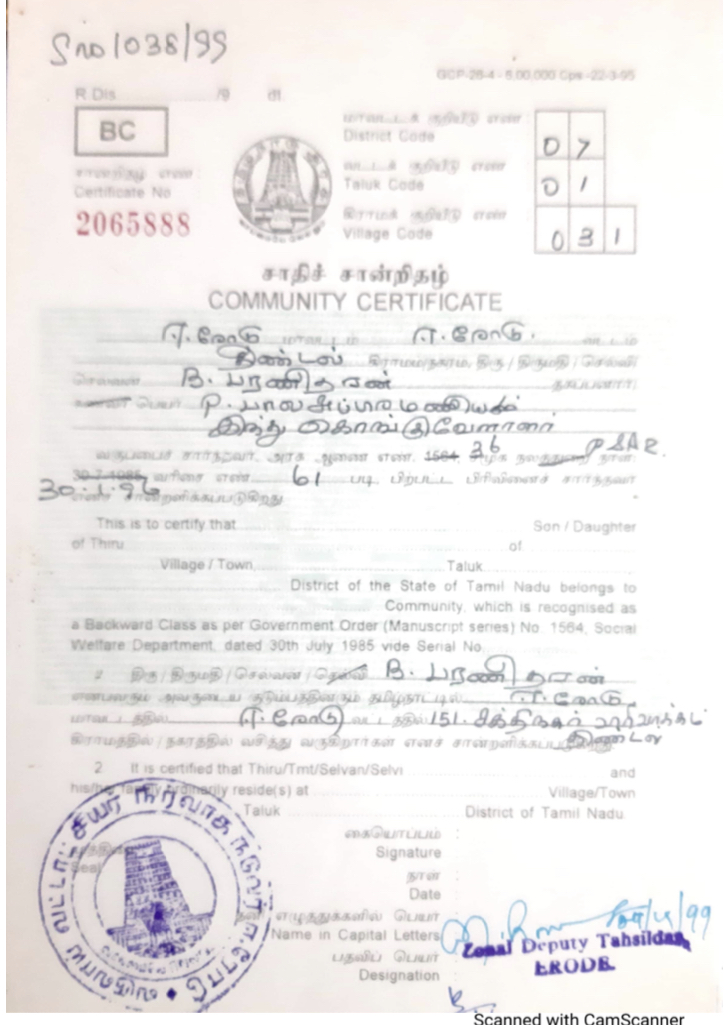 S no 1038/99
GCP-28-4 - 5,00,000 Cps -22-3-95
R.Dis. /9 dt.
BC
மாவட்டக் குறியீடு எண் :
District Code
07
வட்டக் குறியீடு எண்
Taluk Code
01
கிராமக் குறியீடு எண்
Village Code
031
சான்றிதழ் எண் :
Certificate No
2065888
சாதிச் சான்றிதழ்
COMMUNITY CERTIFICATE
ஈ.ரோடு மாவட்டம் ஈ.ரோடு. வட்டம்
திண்டல் கிராமம்/நகரம், திரு / திருமதி / செல்வி
செல்வன் B. பரணிதரன் தகப்பனார்/
கணவர் பெயர் P. பாலசுப்பரமணியம்
இந்து கொங்குவேளாளர்
வகுப்பைச் சார்ந்தவர். அரசு ஆணை எண். 1564, 36 சமூக நலத்துறை நாள்
30-7-1985 வரிசை எண். 61 படி பிற்பட்ட பிரிவினைச் சார்ந்தவர்
எனச் சான்றளிக்கப்படுகிறது
This is to certify that Son / Daughter
of Thiru of
Village / Town, Taluk
District of the State of Tamil Nadu belongs to
Community, which is recognised as
a Backward Class as per Government Order (Manuscript series) No. 1564, Social
Welfare Department, dated 30th July 1985 vide Serial No.
2 திரு / திருமதி / செல்வன் / செல்வி B. பரணிதரன்
என்பவரும் அவருடைய குடும்பத்தினரும் தமிழ்நாட்டில் ஈ.ரோடு
மாவட்டத்தில் ஈ.ரோடு வட்டத்தில் 151. சக்திநகர்
திண்டல்
கிராமத்தில் / நகரத்தில் வசித்து வருகிறார்கள் எனச் சான்றளிக்கப்படுகிறது
2 It is certified that Thiru/Tmt/Selvan/Selvi and
his/her family ordinarily reside(s) at Village/Town
Taluk District of Tamil Nadu.
கையொப்பம் :
Signature
நாள்
Date
Seal
தனி எழுத்துக்களில் பெயர்
Name in Capital Letters
Zonal Deputy Tahsildar,
ERODE.
பதவிப் பெயர்
Designation
Scanned with CamScanner